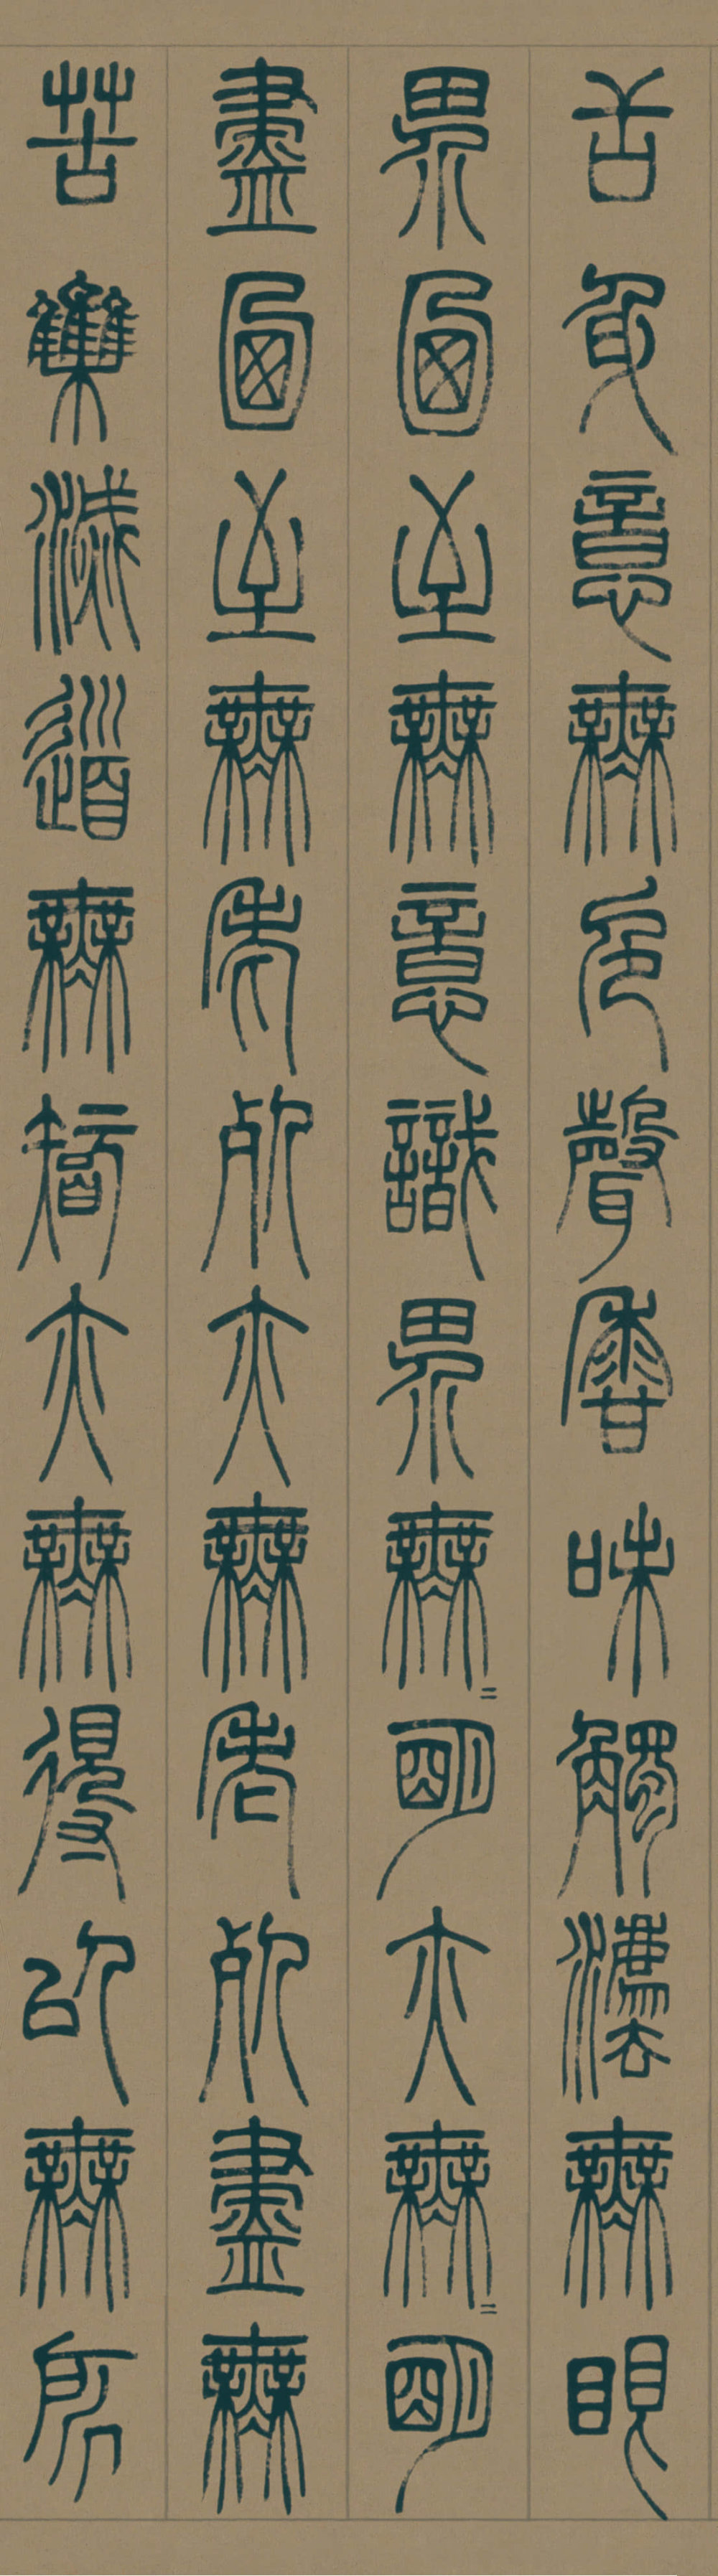 舌身意無色聲香味觸法無眼
界乃至無意識界無〻明亦無〻明
盡乃至無老死亦無老死盡無
苦集滅道無智亦無得以無所